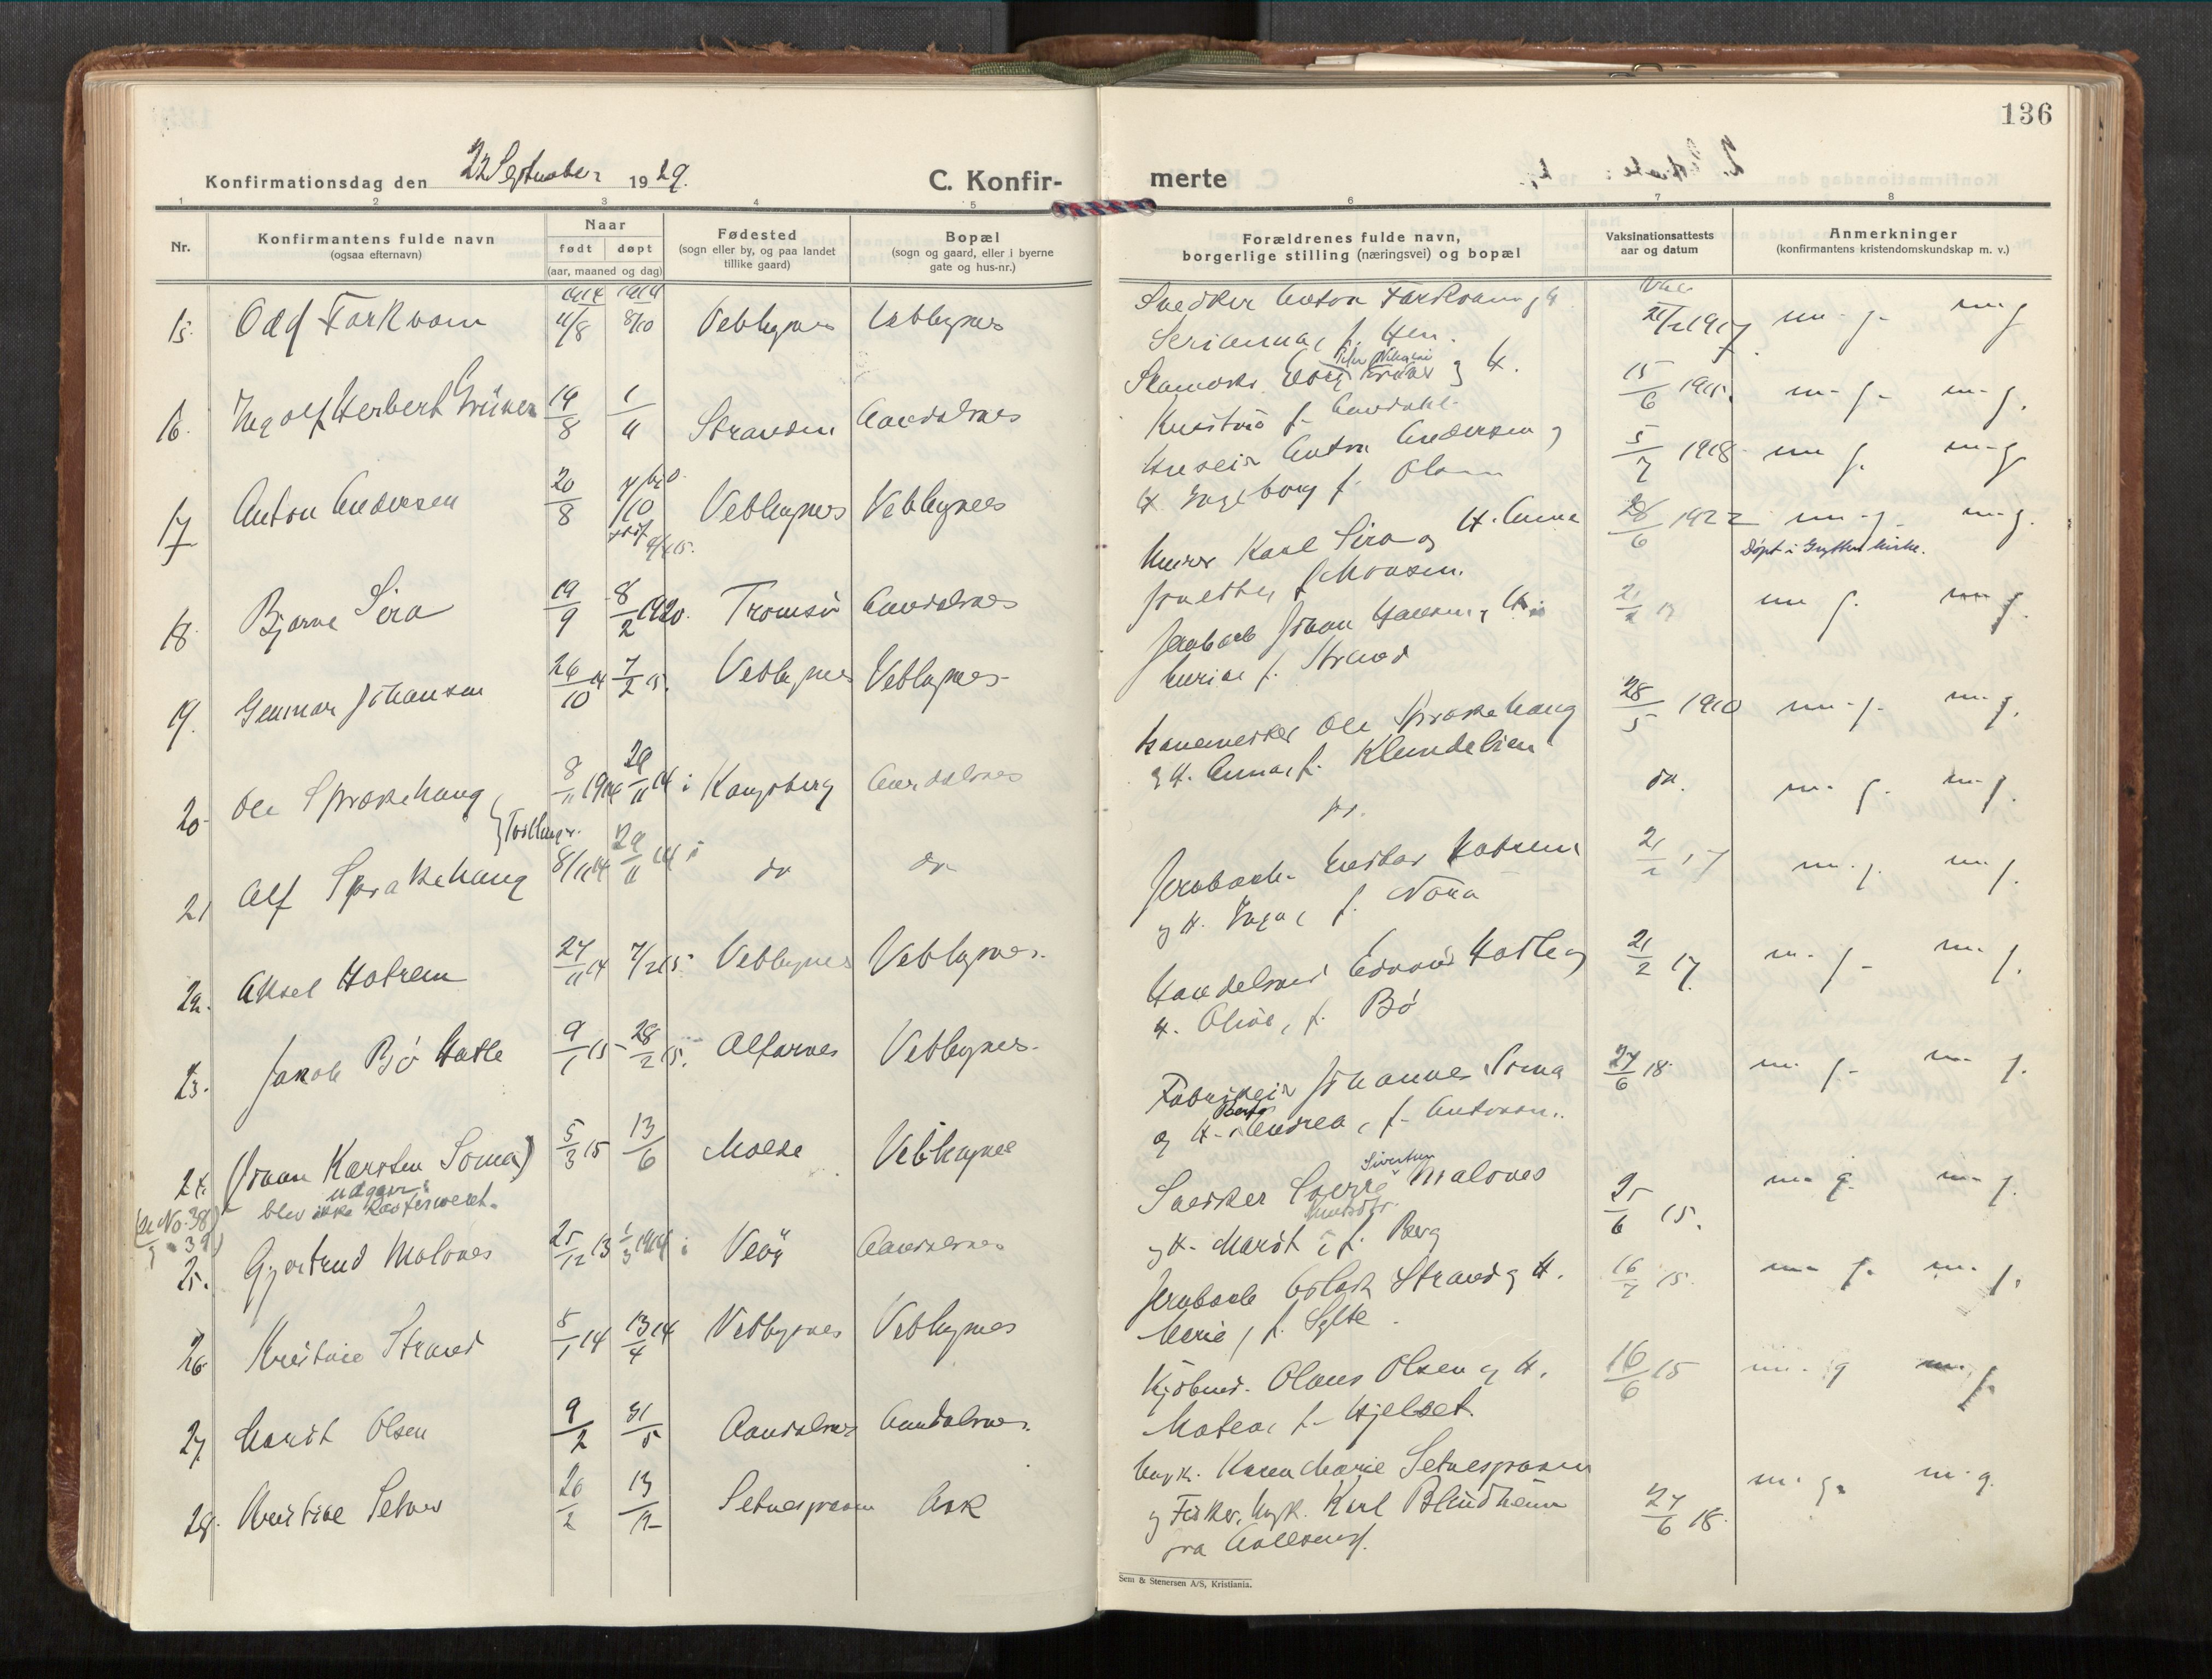 136
Konfirmationsdag den 22 September 1929.
C. Konfir-
merte
1 2 3 4 5 6 7 8
Nr.
Konfirmantens fulde navn
(ogsaa efternavn)
Naar
født døpt
(aar, maaned og dag)
Fødested
(sogn eller by, og paa landet
tillike gaard)
Bopæl
(sogn og gaard, eller i byerne
gate og hus-nr.)
Forældrenes fulde navn,
borgerlige stilling (næringsvei) og bopæl
Vaksinationsattests
aar og datum
Anmerkninger
(konfirmantens kristendomskundskap m. v.)
15. Odd Torkvam 1914 11/8 1914 8/10 Veblugnes Veblugnes
Snedker Anton Torkvam og H.
Serianna, f. Hen.
21/2 1917 m. g. m. g.
16. Ingolf Herbert Grüner 14/8 1/11 Stranden Aandalsnes
og H.
f. Aandahl
15/6 1915. m. g. m. g.
17 Anton Andersen 20/8 Veblugnes Veblugnes
Anton Andersen og
H. Ingeborg f. Olsen
5/7 1918 m g. m. g.
18. Bjarne Sira 19/9 8/2 1920. Tromsö Aandalsnes
Murer Karl Sira og H. Anna
f. Monsen.
28/6 1922 m. g. m. g.
Døpt i Grytten kirke.
19. Gunnar Johansen 26/10 14 7/2 15. Veblugnes Veblugnes
Johan Hansen, H.
f. Strand
m g. m g.
20. Ole Sprakehaug 8/11 1914 29/11 14 i Kongsberg Aandalsnes
} Tvillinger.
Ole Sprakehaug
og H. Anna, f. Klundelien
28/5 1910 m. g. m. g.
21 Alf Sprakehaug 8/11 14 29/11 14 i do do
do. m. g. m. g.
22. Aksel Hatrem 27/11 14 7/2 15. Veblugnes Veblugnes.
Jernbarb. Hatrem
og H. Inga, f.
21/2 17 m. g. m. g.
23. Jakob Bjö Hatle 9/1 15 28/2 15. Alfarnes Veblugnes.
Handelsmd Edvard Hatle og
H. Olive, f. Bö
21/2 17. m. g. m. g.
24. (Johan Karsten Soma) 5/3 15 13/6 Molde Veblugnes
udgaar,
blev ikke konfirmert.
Johannes Soma
og H. Berta Andrea, f. Antonsen.
27/6 18. m. g. m. g.
(se No. 38)
25. Gjertrud Malones 25/12 13 1/3 1914 i Veöy Aandalsnes
Snedker Sverre Sivertsen Malones
og H. Marit f. Berg
25/6 15. m. g. m. g.
26. Kristine Strand 5/1 14 13/4 14 Veblugnes Veblugnes
Jernbarb. Strand og H.
Marie, f. Sylte
16/7 15. m. g. m. g.
27. Marit Olsen 9/2 31/5 Aandalsnes Aandalsnes.
Kjöbmd. Olaus Olsen og H.
Matea, f. Hjelset
16/6 15 m. g m. g.
28. Kristine Setnes 20/2 13/12 Setnesgraven Ask
Ungk. Karen Marie Setnesgraven
og Fisker, Ungk. Karl Blindheim
fra Aalesund.
27/6 18. m. g. m. g.
Sem & Stenersen A/S, Kristiania.